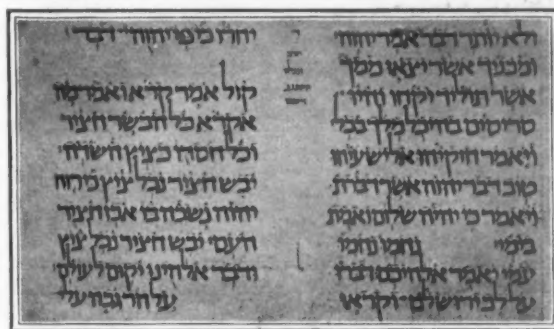 ולא יותר דבר אמר יהוה
ומבניך אשר יצאו ממך
אשר תוליד יקחו והיו
סריסים בהיכל מלך בבל
ויאמר חזקיהו אל ישעיהו
טוב דבר יהוה אשר דברת
ויאמר כי יהיה שלום ואמת
בימי נחמו נחמו
עמי יאמר אלהיכם דברו
על לב ירושלם וקראו
יחדו כי פי יהוה דבר
קול אמר קרא ואמר מה
אקרא כל הבשר חציר
וכל חסדו כציץ השדה
יבש חציר נבל ציץ כי רוח
יהוה נשבה בו אכן חציר
העם יבש חציר נבל ציץ
ודבר אלהינו יקום לעולם
על הר גבה עלי